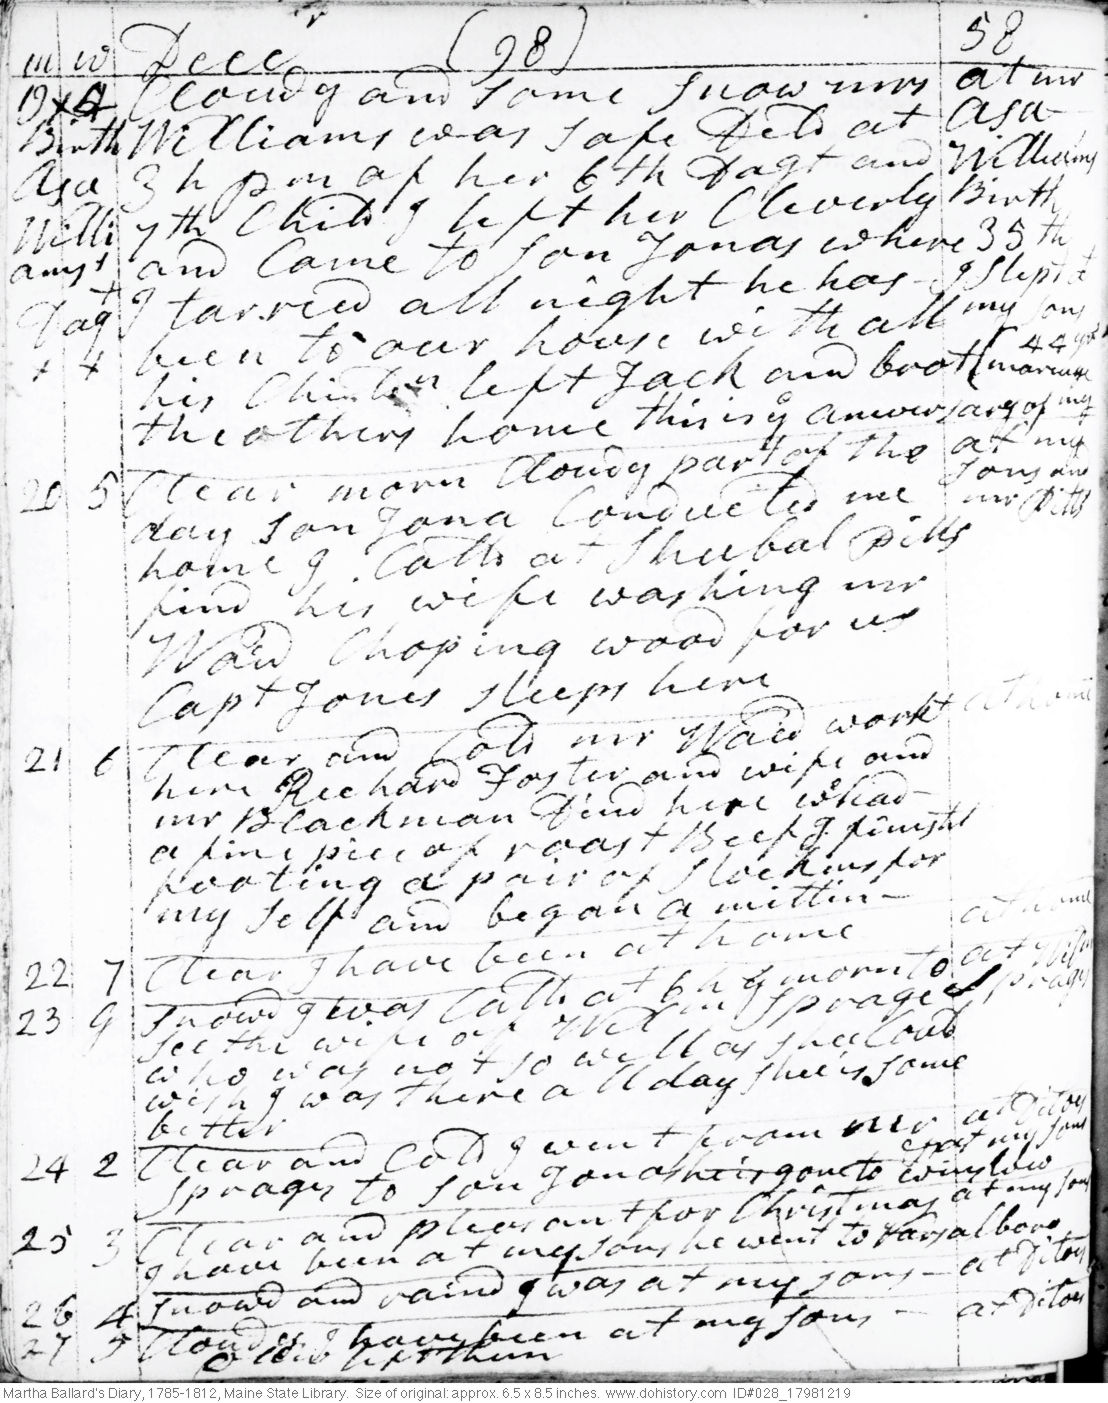 m w Decr (98) 58
19 x 4 Cloudy and Some Snow mrs at mr
Birth Williams was Safe Deld at Asa
Asa 3 h pm of her 6th Dagt and Williams
Willi 7th Child I left her Cleverly Birth
amss and Came to Son Jonas where 35th
Dag I tarried all night he has I Slept at
x x been to our house with all my Sons
his Children left Jack and brot 44 years
the others home this is ye aniversary of my marriage
20 5 Clear morn Cloudy part of the at my
day Son Jona Conducted me Sons and
home I Calld at Shubal Pitts mr Pitts
find his wife washing mr
Waid Choping wood for us
Capt Jones sleeps here
21 6 Clear and Cold mr Waid workt at home
here Richard Foster and wife and
mr Blackman Dind here we had
a fine piece of roast Beef I finisht
footing a pair of Stockins for
my Self and began a mittin
22 7 Clear I have been at home at home
23 G Snowd I was Calld at 6 h ye morn to at Wm
See the wife of Wm Sprage Sprages
who was not so well as shee Could
wish I was there all day shee is some
better
24 2 Clear and Cold I went from mr at Ditoes
Sprages to Son Jonas he is gone to winslow at my Sons
25 3 Clear and pleasant for Christmas at my Sons
I have been at my Sons he went to Varsalboro
26 4 Snowd and raind I was at my Sons at Ditoes
27 5 Cloudy I have been at my Sons at Ditoes
Martha Ballard's Diary, 1785-1812, Maine State Library. Size of original: approx. 6.5 x 8.5 inches. www.dohistory.com ID#028_17981219